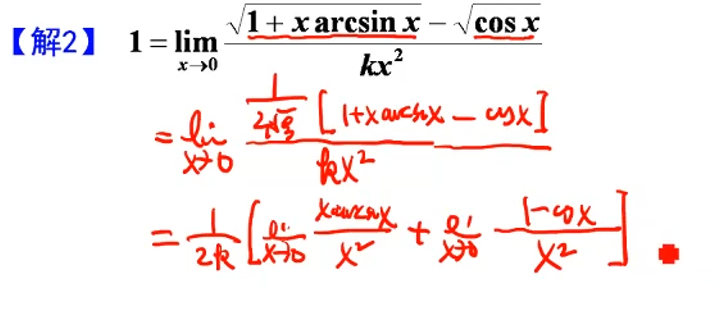 【解2】 1 = lim_{x→0} \frac{\sqrt{1 + x arcsin x} − \sqrt{cos x}}{kx^2}
= lim_{x→0} \frac{\frac{1}{2\sqrt{ξ}} [1+x arcsin x − cos x]}{kx^2}
= \frac{1}{2k} [ lim_{x→0} \frac{x arcsin x}{x^2} + lim_{x→0} \frac{1−cos x}{x^2} ]